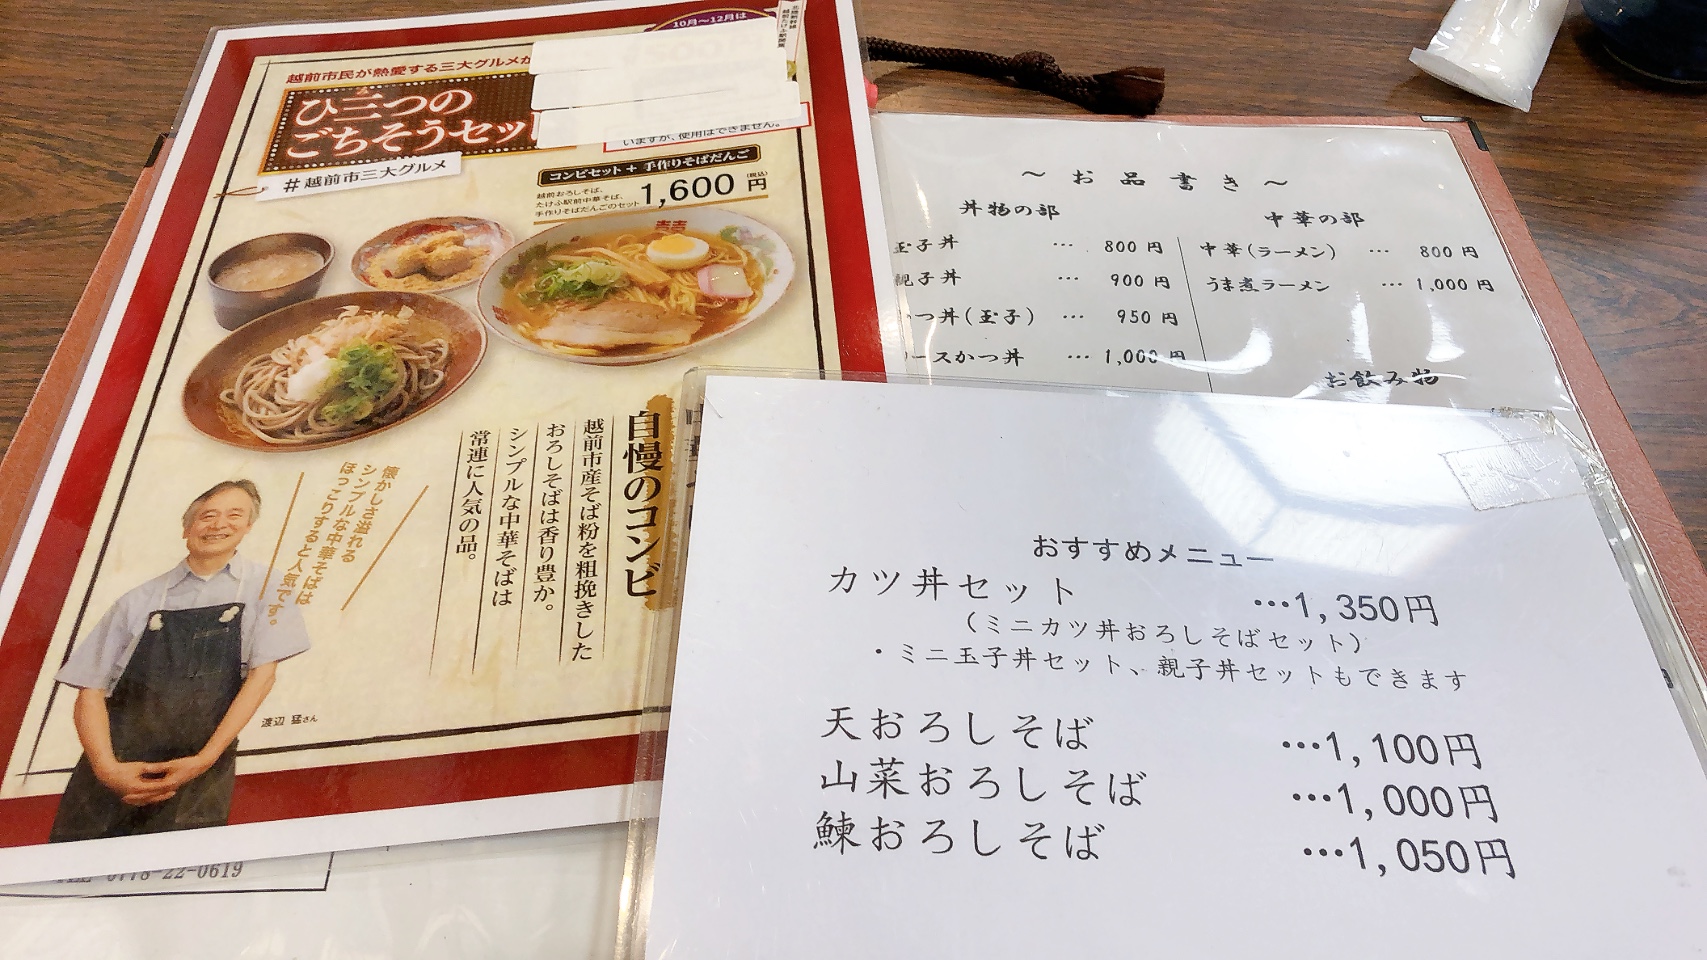 10月〜12月は
越前市民が熱愛する三大グルメが
ひ三つの
ごちそうセット
#越前市三大グルメ
いますが、使用はできません。
コンビセット + 手作りそばだんご
越前おろしそば、
たけふ駅前中華そば、
手作りそばだんごのセット
1,600円
(税込)
自慢のコンビ
越前市産そば粉を粗挽きした
おろしそばは香り豊か。
シンプルな中華そばは
常連に人気の品。
懐かしさ溢れる
シンプルな中華そばは
ほっこりすると人気です。
渡辺 猛さん
TEL 0778-22-0619
〜お品書き〜
丼物の部
玉子丼 … 800円
親子丼 … 900円
かつ丼(玉子) … 950円
ソースかつ丼 … 1,000円
中華の部
中華(ラーメン) … 800円
うま煮ラーメン … 1,000円
お飲み物
おすすめメニュー
カツ丼セット …1,350円
(ミニカツ丼おろしそばセット)
・ミニ玉子丼セット、親子丼セットもできます
天おろしそば …1,100円
山菜おろしそば …1,000円
鰊おろしそば …1,050円